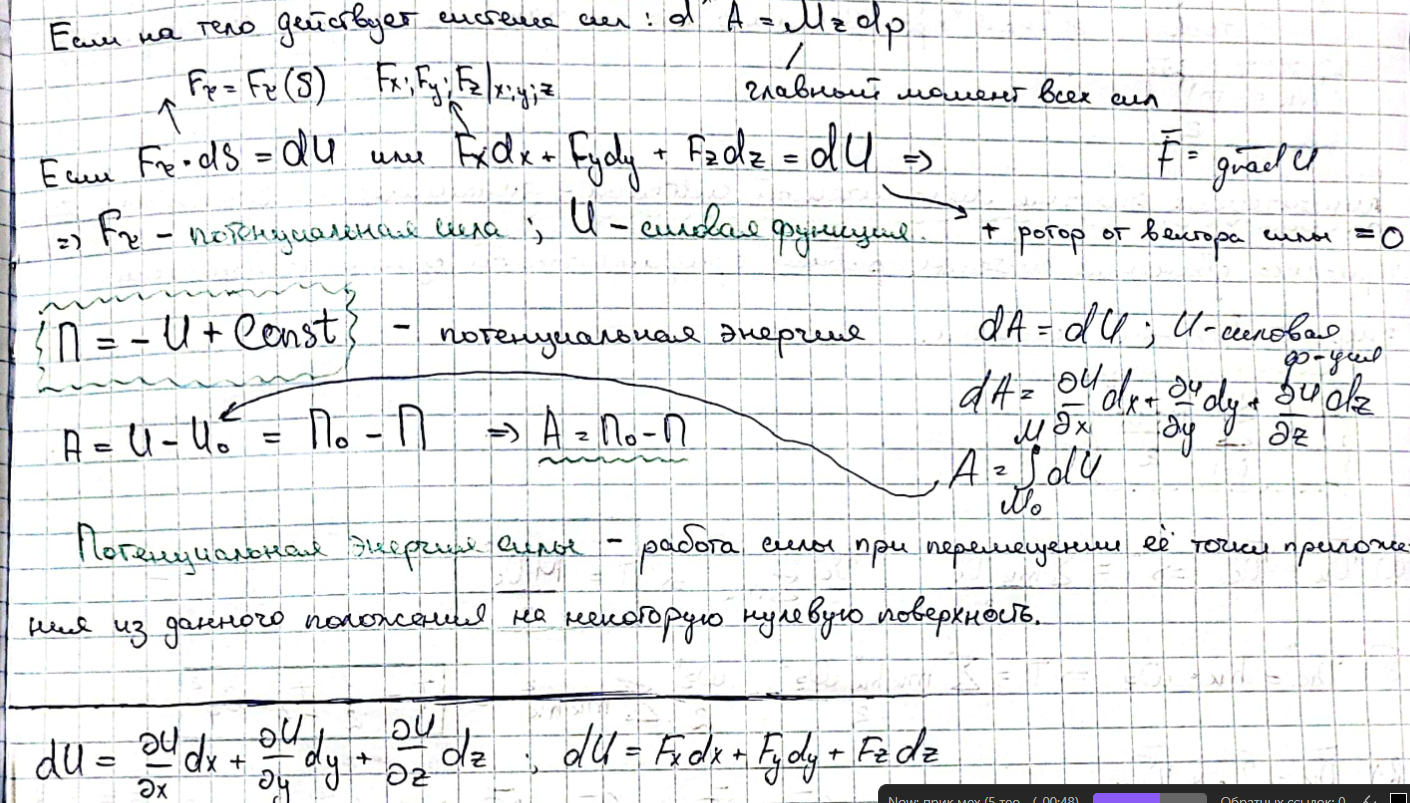 Если на тело действует система сил: d' A = Mz dφ
Fτ = Fτ(S) Fx; Fy; Fz | x; y; z главный момент всех сил
Если Fτ · dS = dU или Fxdx + Fydy + Fzdz = dU ⇒ F̄ = grad U
⇒ Fτ – потенциальная сила; U – силовая функция. + ротор от вектора силы = 0
П = – U + Const – потенциальная энергия dA = dU; U – силовая
ф-ция
dA = ∂U/∂x dx + ∂U/∂y dy + ∂U/∂z dz
A = U – U₀ = П₀ – П ⇒ A = П₀ – П
A = ∫ dU M M₀
Потенциальная энергия силы – работа силы при перемещении её точки приложе-
ния из данного положения на некоторую нулевую поверхность.
dU = ∂U/∂x dx + ∂U/∂y dy + ∂U/∂z dz ; dU = Fxdx + Fydy + Fzdz